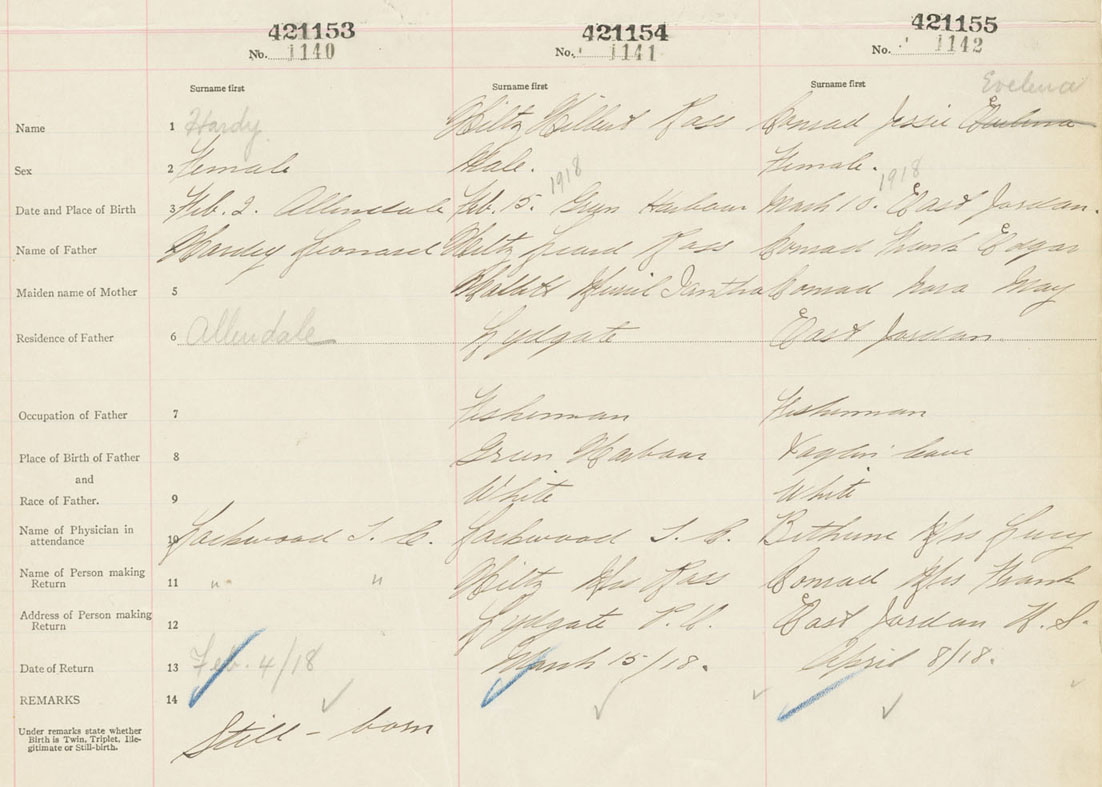 421153 421154 421155
No. 1140 No. 1141 No. 1142
Surname first Surname first Surname first
Evelena
Name 1 Hardy Hiltz Ross Conrad Jessie
Sex 2 Female Male. Female.
1918 1918
Date and Place of Birth 3 Feb. 2. Allendale Feb. 15. Green Harbour March 10. East Jordan.
Name of Father 4 Hardy Leonard Hiltz Ross Conrad Frank Edgar
Maiden name of Mother 5 Muriel Iantha Conrad Nora May
Residence of Father 6 Allendale Lydgate East Jordan
Occupation of Father 7 Fisherman Fisherman
Place of Birth of Father 8 Green Harbour
and
Race of Father. 9 White White
Name of Physician in
attendance 10 Lockwood T. C. Lockwood T. C. Bethune Mrs Lucy
Name of Person making
Return 11 " " Hiltz Mrs Ross Conrad Mrs Frank
Address of Person making
Return 12 Lydgate P.O. East Jordan N. S.
Date of Return 13 Feb. 4/18 March 15/18. April 8/18.
REMARKS 14
Under remarks state whether
Birth is Twin, Triplet, Ille-
gitimate or Still-birth.
Still-born